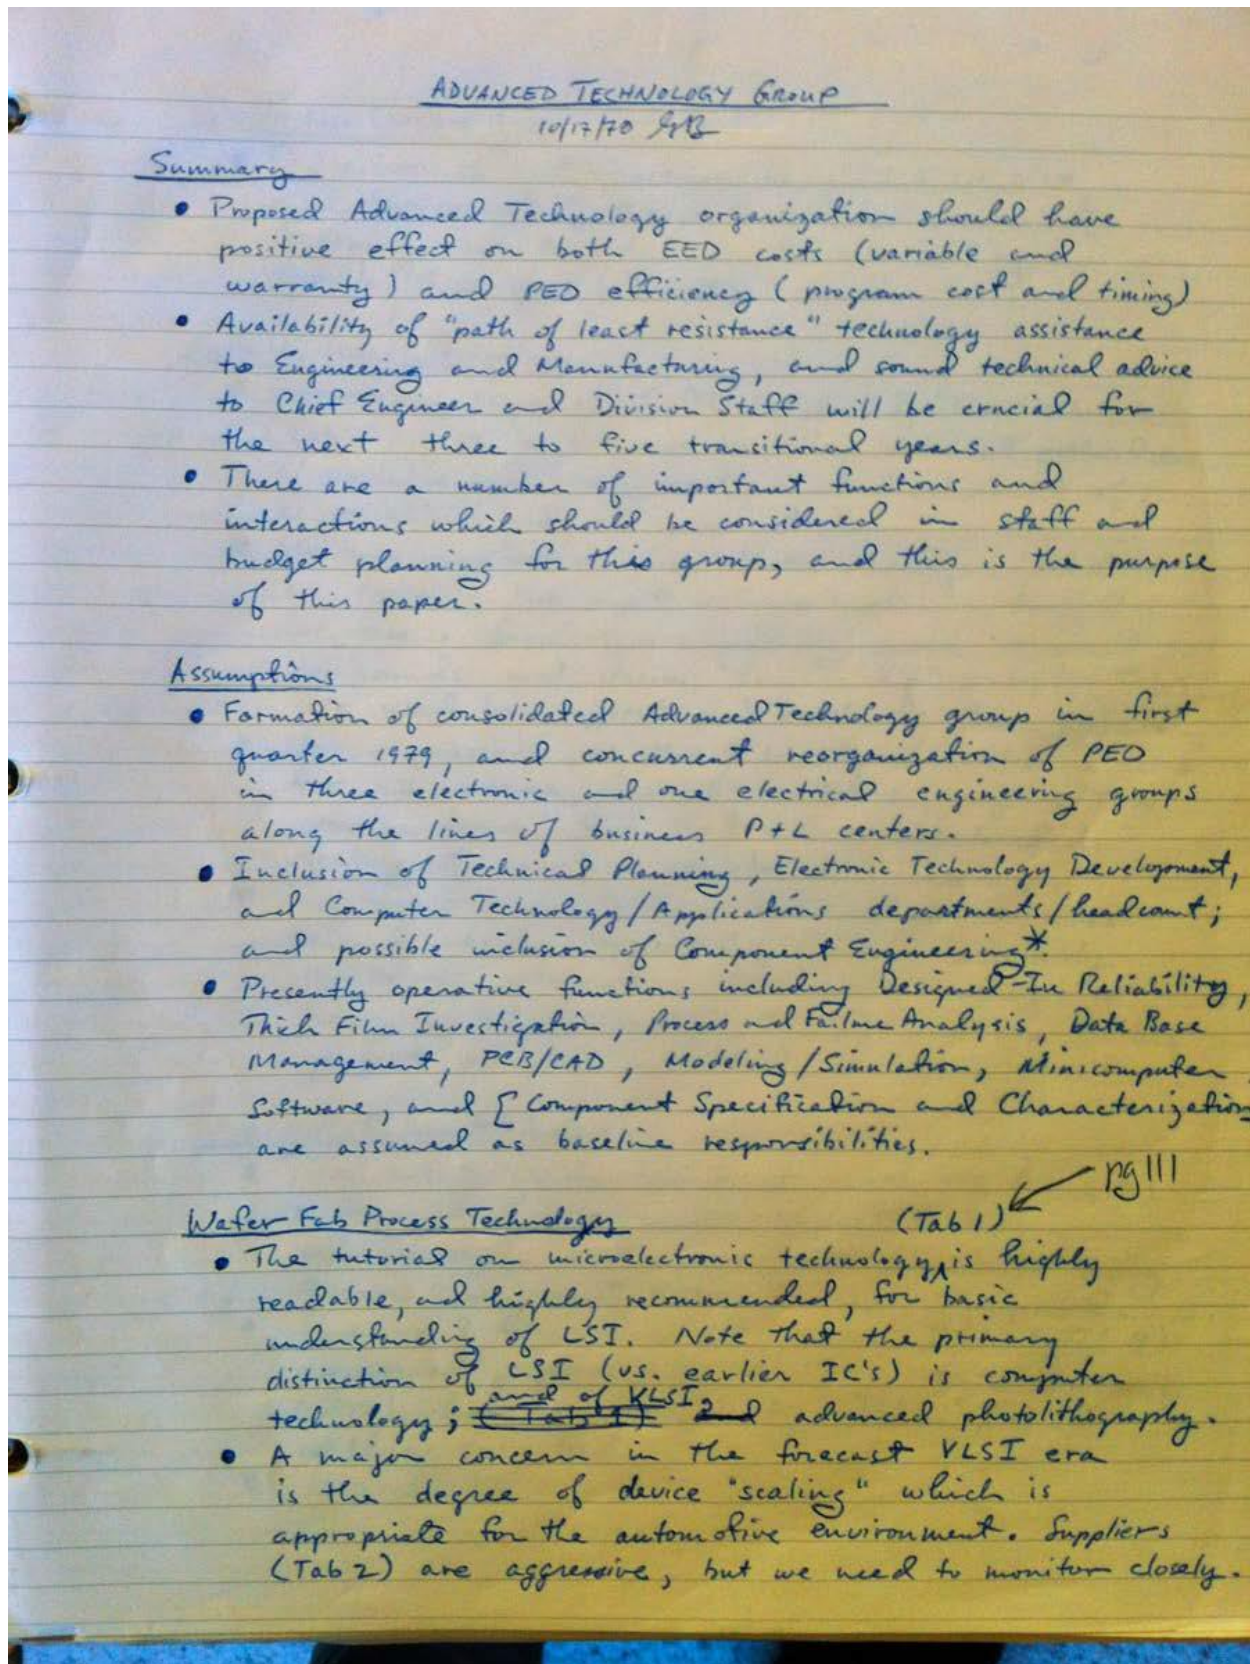 ADVANCED TECHNOLOGY GROUP
10/17/78
Summary
• Proposed Advanced Technology organization should have
positive effect on both EED costs (variable and
warranty) and PEO efficiency (program cost and timing)
• Availability of "path of least resistance" technology assistance
to Engineering and Manufacturing, and sound technical advice
to Chief Engineer and Division Staff will be crucial for
the next three to five transitional years.
• There are a number of important functions and
interactions which should be considered in staff and
budget planning for this group, and this is the purpose
of this paper.
Assumptions
• Formation of consolidated Advanced Technology group in first
quarter 1979, and concurrent reorganization of PEO
in three electronic and one electrical engineering groups
along the lines of business P+L centers.
• Inclusion of Technical Planning, Electronic Technology Development,
and Computer Technology/Applications departments/headcount;
and possible inclusion of Component Engineering*.
• Presently operative functions including Designed-In Reliability,
Thick Film Investigation, Process and Failure Analysis, Data Base
Management, PCB/CAD, Modeling/Simulation, Minicomputer
Software, and [Component Specification and Characterization
are assumed as baseline responsibilities.
pg 111
Wafer Fab Process Technology (Tab 1)
• The tutorial on microelectronic technology is highly
readable, and highly recommended, for basic
understanding of LSI. Note that the primary
distinction of LSI (vs. earlier IC's) is computer
and of VLSI
technology; (Tab 1) advanced photolithography.
• A major concern in the forecast VLSI era
is the degree of device "scaling" which is
appropriate for the automotive environment. Suppliers
(Tab 2) are aggressive, but we need to monitor closely.